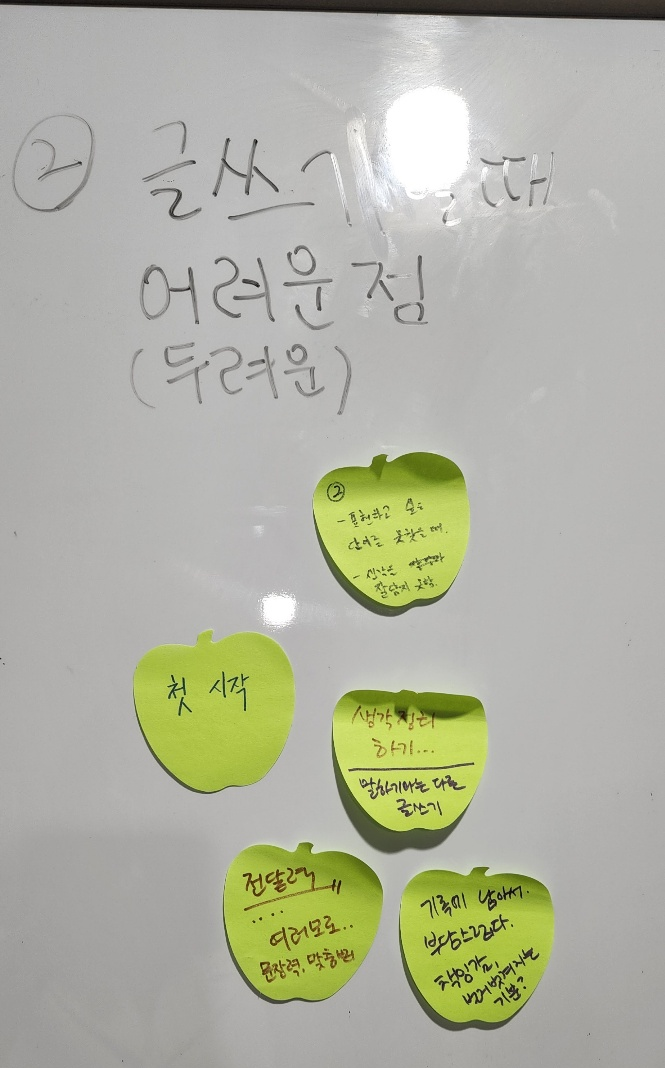 ② 글쓰기 할 때
어려운 점
(두려운)
②
- 표현하고 싶은
단어를 못찾을 때.
- 생각은
잘 담지 못함.
첫 시작
생각정리
하기...
말하기와는 다른
글쓰기
전달력
....
여러모로..
문장력, 맞춤법
기록이 남아서.
부담스럽다.
책임감,
벌거벗겨지는
기분?